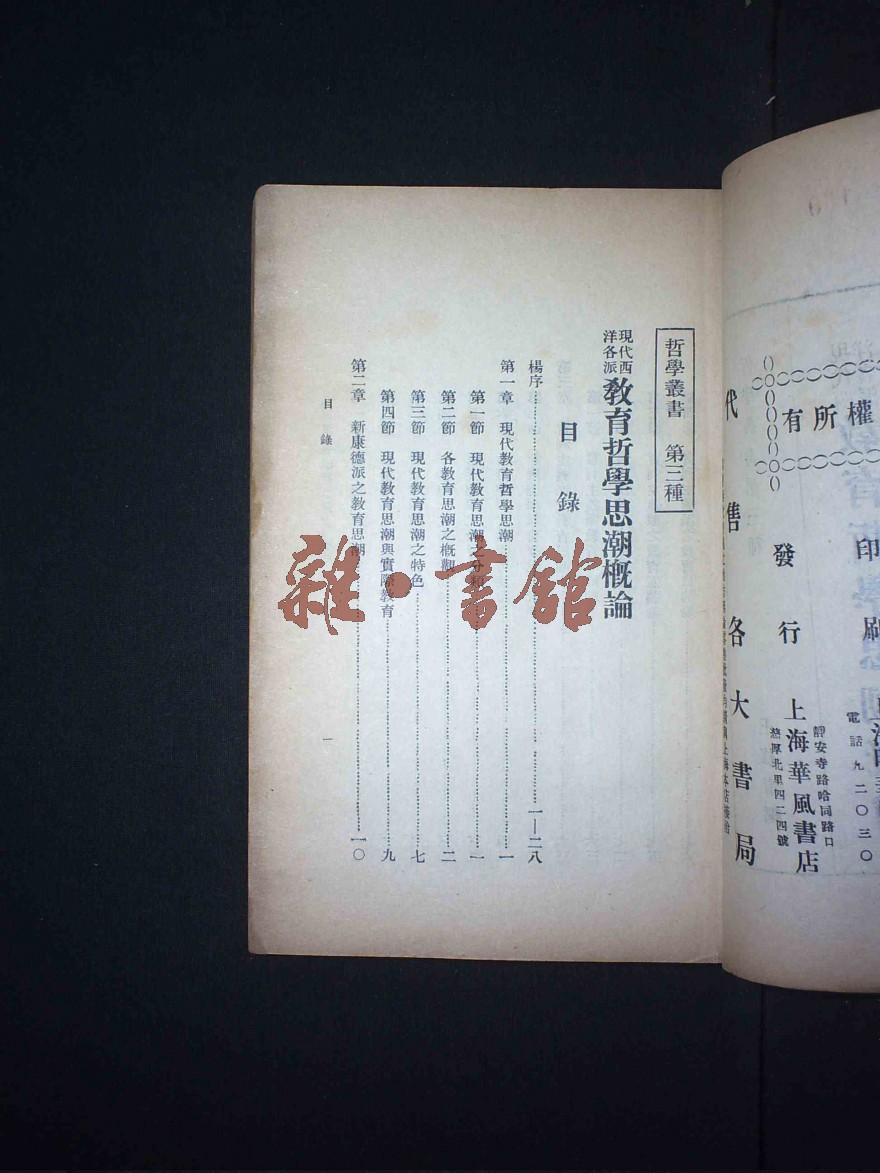 權所有
印刷
電話九二〇三〇
發行
上海華風書店
靜安寺路哈同路口
慈厚北里四二四號
代售各大書局
哲學叢書 第三種
現代西洋各派
教育哲學思潮概論
目錄
楊序 一—二八
第一章 現代教育哲學思潮 一
第一節 現代教育思潮之分 一
第二節 各教育思潮之概觀 二
第三節 現代教育思潮之特色 七
第四節 現代教育思潮與實際教育 九
第二章 新康德派之教育思潮 一〇
目錄
一
雜·書館